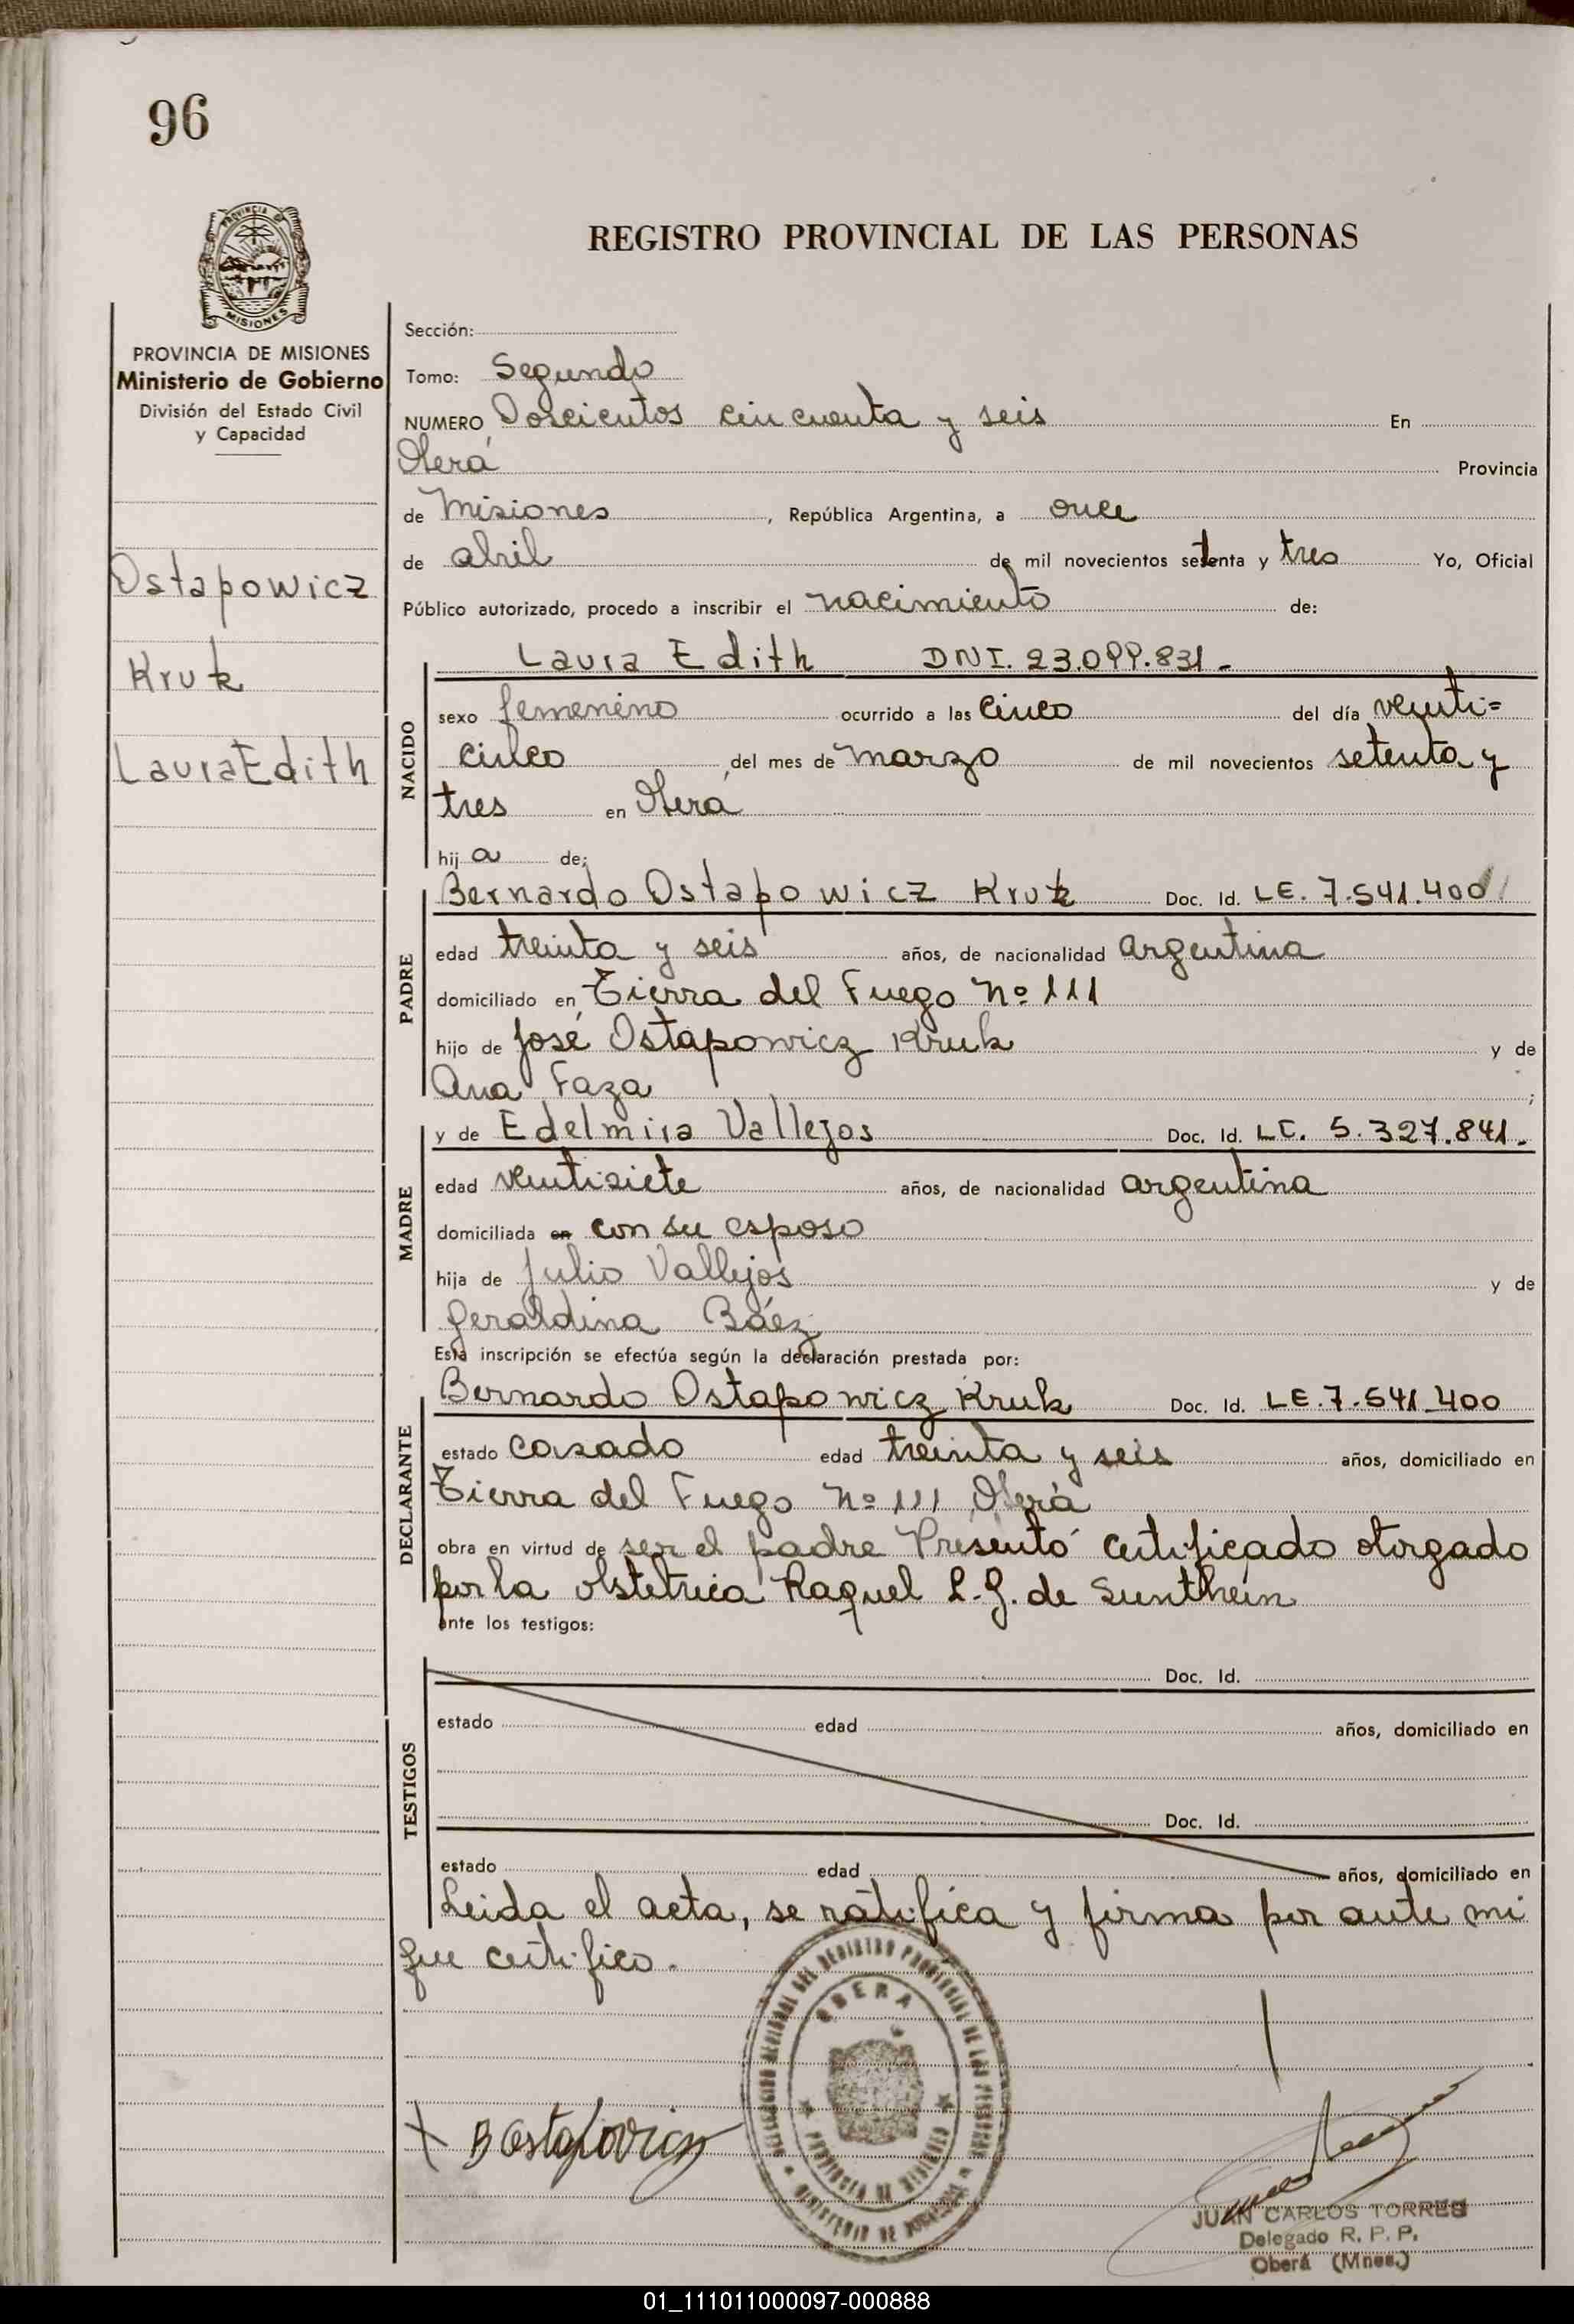 96
PROVINCIA DE
MISIONES
REGISTRO PROVINCIAL DE LAS PERSONAS
PROVINCIA DE MISIONES
Ministerio de Gobierno
División del Estado Civil
y Capacidad
Ostapowicz
Kruk
Laura Edith
Sección:
Tomo: Segundo
NUMERO Doscientos cincuenta y seis En
Oberá Provincia
de Misiones, República Argentina, a once
de abril de mil novecientos setenta y tres Yo, Oficial
Público autorizado, procedo a inscribir el nacimiento de:
Laura Edith DNI. 23.099.831-
NACIDO
sexo femenino ocurrido a las cinco del día venti=
cinco del mes de marzo de mil novecientos setenta y
tres en Oberá
hij a de;
PADRE
Bernardo Ostapowicz Kruk Doc. Id. LE. 7.541.400
edad treinta y seis años, de nacionalidad argentina
domiciliado en Tierra del Fuego Nº 111
hijo de José Ostapowicz Kruk y de
Ana Faza ;
MADRE
y de Edelmira Vallejos Doc. Id. LC. 5.327.841.
edad ventisiete años, de nacionalidad argentina
domiciliada en con su esposo
hija de Julio Vallejos y de
Geraldina Báez
Esta inscripción se efectúa según la declaración prestada por:
DECLARANTE
Bernardo Ostapowicz Kruk Doc. Id. LE. 7.541.400
estado casado edad treinta y seis años, domiciliado en
Tierra del Fuego Nº 111 Oberá
obra en virtud de ser el padre Presentó certificado otorgado
por la obstetrica Raquel L. G. de Sunthein
ante los testigos:
TESTIGOS
Doc. Id.
estado edad años, domiciliado en
Doc. Id.
estado edad años, domiciliado en
Leida el acta, se ratifica y firma por ante mi
que certifico.
OBERA
PROVINCIA DE MISIONES
X B Ostapovicz
JUAN CARLOS TORRES
Delegado R. P. P.
Oberá (Mnes.)
01_111011000097-000888